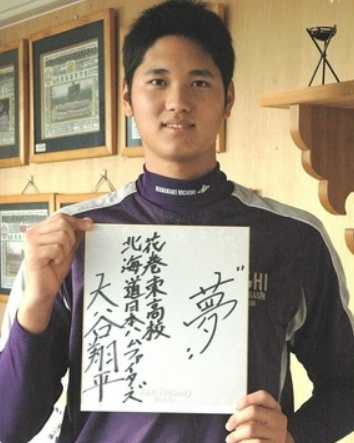 HANAMAKI HIGASHI
夢
花巻東高校
北海道日本ハムファイターズ
大谷翔平